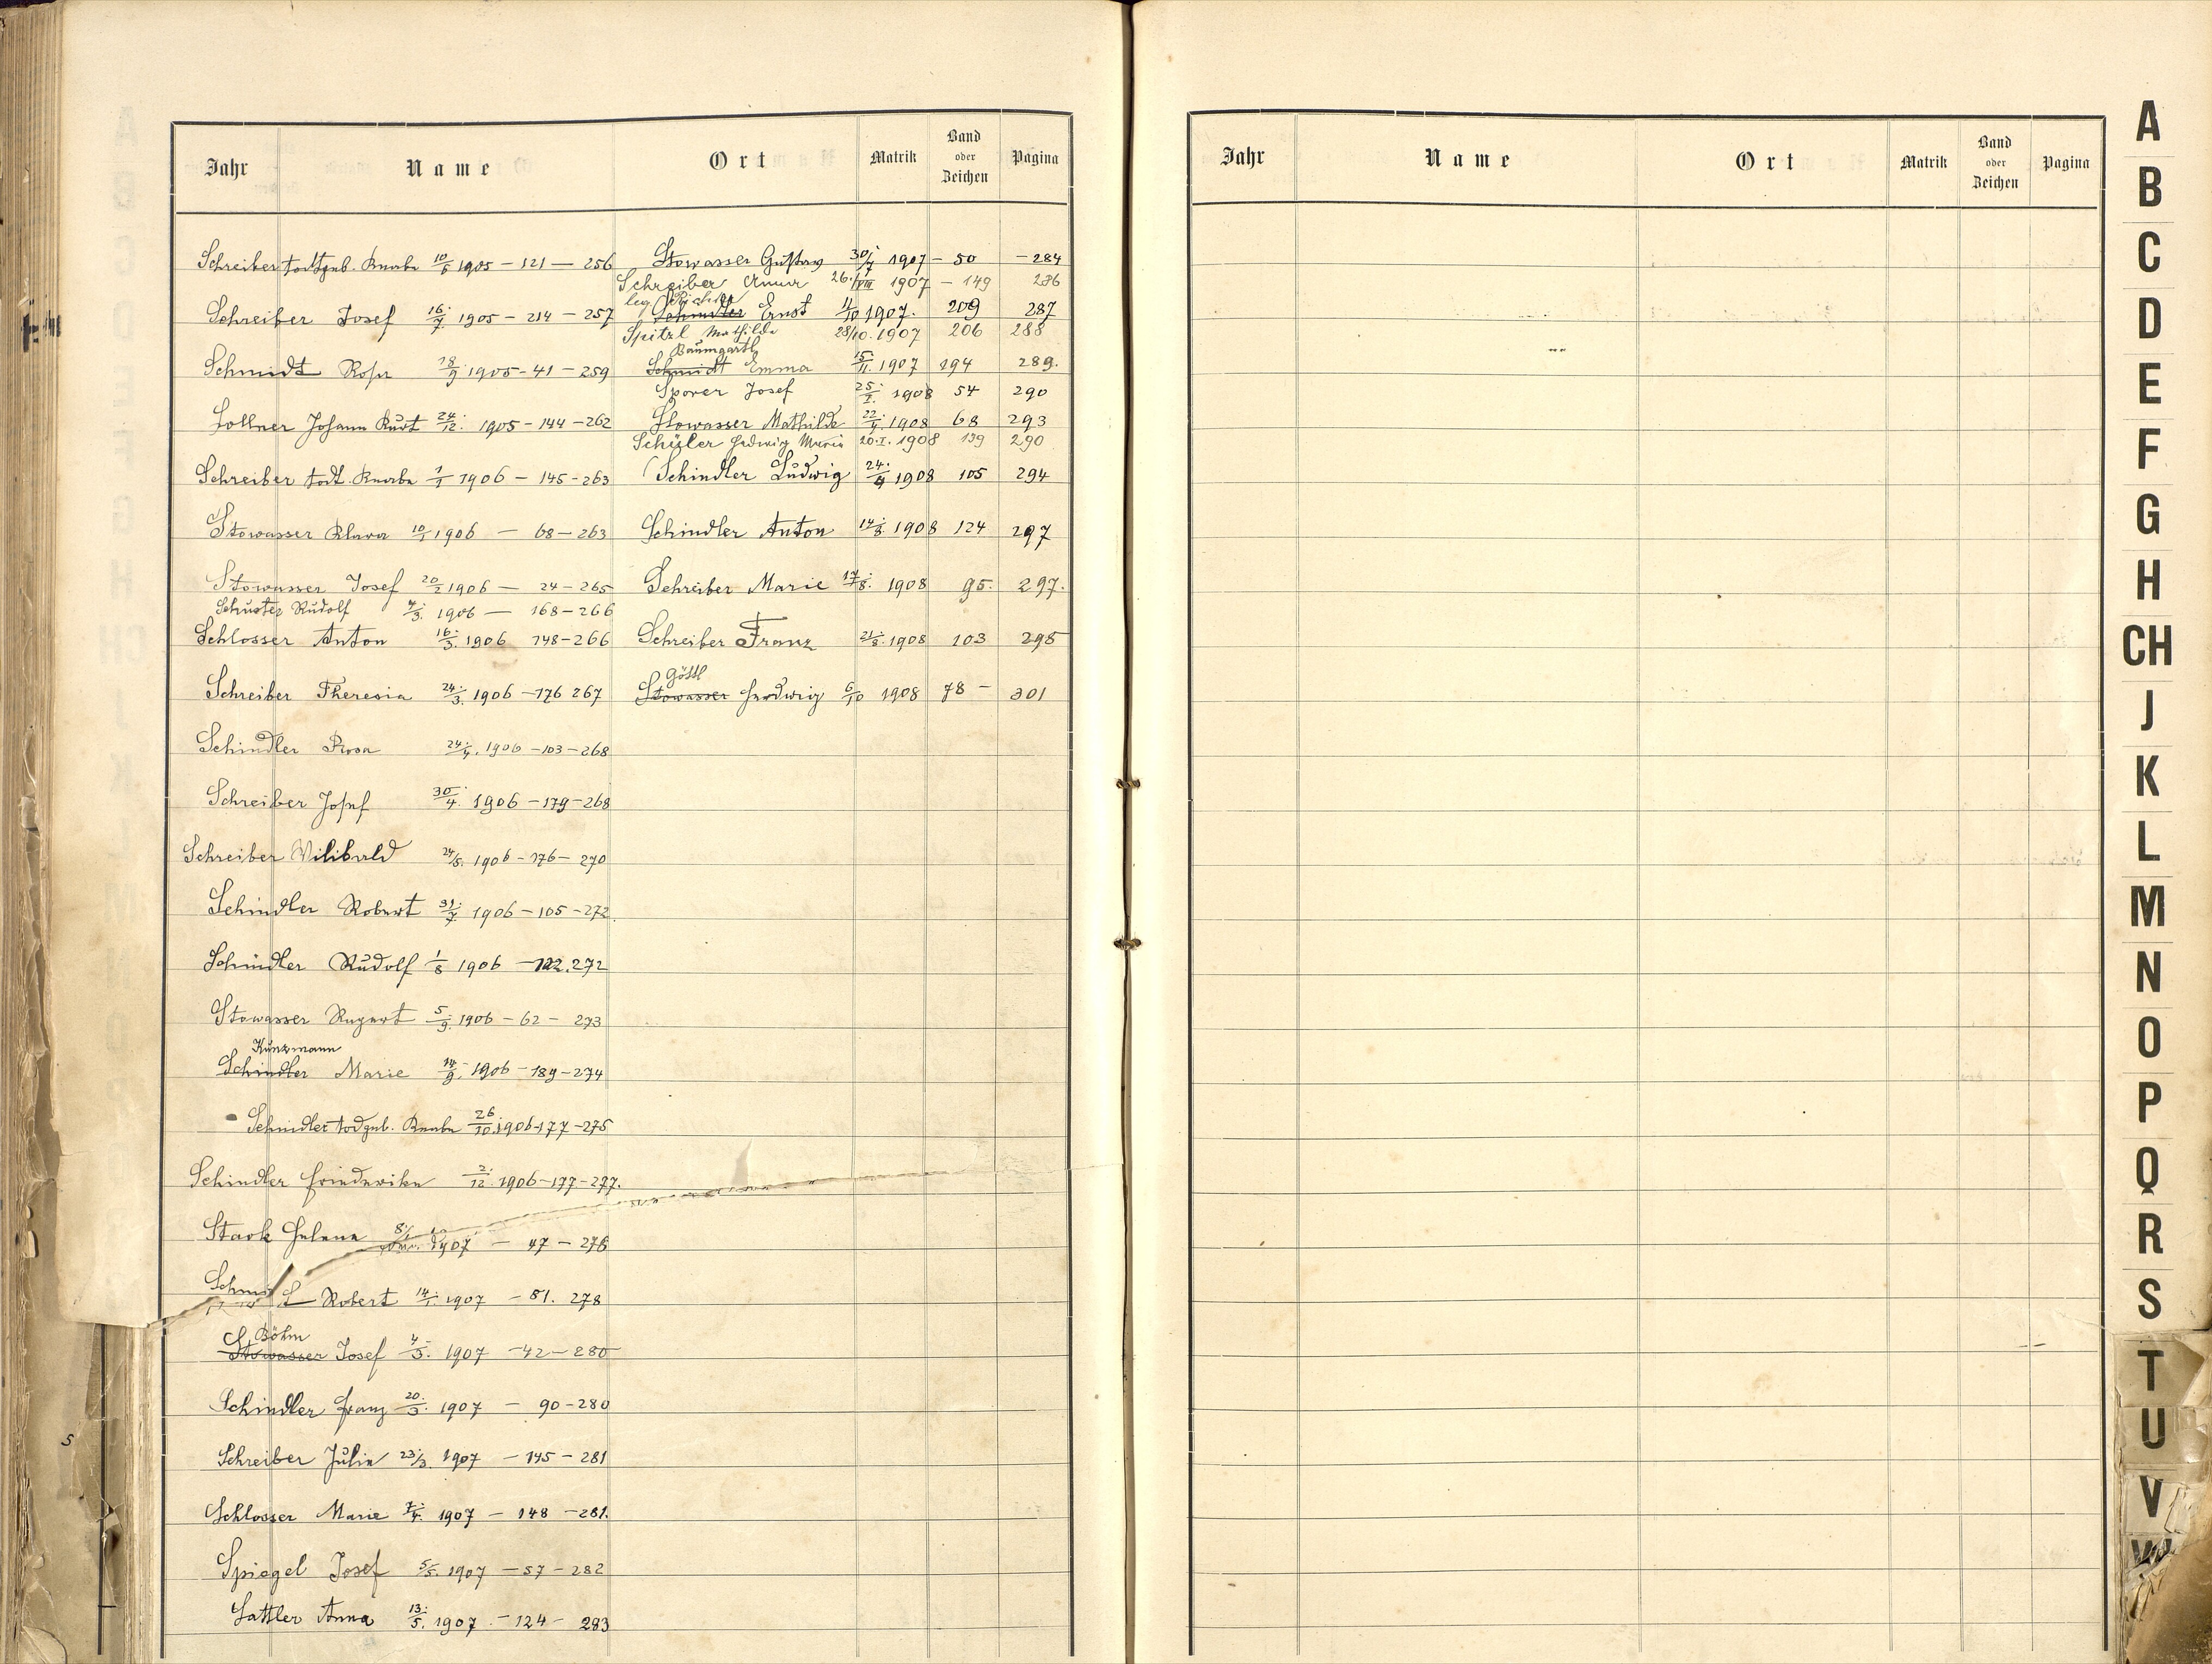 Jahr Name Ort Matrik Band oder Zeichen Pagina
Schreiber todtgeb. Knabe 10/6 1905 – 121 – 256
Schreiber Josef 16./7. 1905 – 214 – 257
Schmidt Rosa 18/9 1905 – 41 – 259
Sollner Johann Kurt 24/12. 1905 – 144 – 262
Schreiber todt. Knabe 1/1 1906 – 145 – 263
Stowasser Klara 10/1 1906 – 68 – 263
Stowasser Josef 20/2 1906 – 24 – 265
Schuster Rudolf 4./3. 1906 – 168 – 266
Schlosser Anton 16./3. 1906 148 – 266
Schreiber Theresia 24./3. 1906 – 176 267
Schindler Rosa 24./4. 1906 – 103 – 268
Schreiber Josef 30./4. 1906 – 179 – 268
Schreiber Wilibald 24/6. 1906 – 176 – 270
Schindler Robert 31./7. 1906 – 105 – 272.
Schindler Rudolf 1/8 1906 – 122. 272
Stowasser Rupert 5./9. 1906 – 62 – 273
Kunzmann
Schindler Marie 14./9. 1906 – 189 – 274
Schindler todgeb. Knabe 26/10. 1906 – 177 – 275
Schindler Friederike 2./12. 1906 – 177 – 277.
Stark Helene 8./1 1907 – 47 – 278
Robert 14./1. 1907 – 81. 278
Böhm
Stowasser Josef 4/3. 1907 – 42 – 280
Schindler Franz 20/3. 1907 – 90 – 280
Schreiber Julie 23./3. 1907 – 145 – 281
Schlosser Marie 7./4. 1907 – 148 – 281.
Spiegel Josef 5/5. 1907 – 57 – 282
Sattler Anna 13./5. 1907 – 124 – 283
Stowasser Gustav 30/7 1907 – 50 – 284
Schreiber 26./VIII 1907 – 149 286
leg. Pichler
Schindler Ernst 11/10 1907. 209 287
Spitzl Mathilde 28/10. 1907 206 288
Baumgartl
Schmidt Emma 15./11. 1907 194 289.
Sporer Josef 25./1. 1908 54 290
Stowasser Mathilde 22./4. 1908 68 293
Schüler Hedwig Maria 20. I. 1908 139 290
Schindler Ludwig 24./4 1908 105 294
Schindler Anton 14./8. 1908 124 297
Schreiber Marie 17/8. 1908 95. 297.
Schreiber Franz 21./8. 1908 103 298
Göstl
Stowasser Hedwig 6/10 1908 78 – 301
S
Jahr Name Ort Matrik Band oder Zeichen Pagina
A
B
C
D
E
F
G
H
CH
J
K
L
M
N
O
P
Q
R
S
T
U
V
W